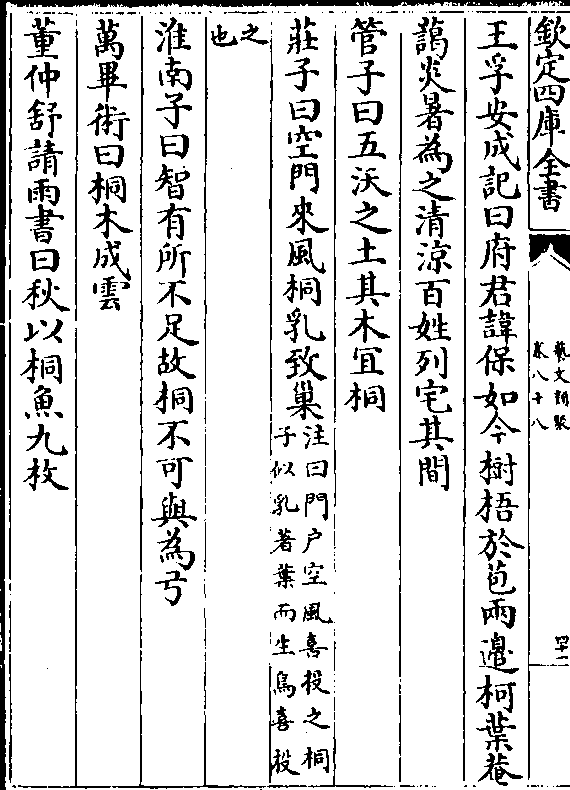 欽定四庫全書
藝文類聚
卷八十八
四十一
王孚安成記曰府君諱保如令樹梧於苞兩邉柯葉菴
藹炎暑為之清涼百姓列宅其間
管子曰五沃之土其木宜桐
莊子曰空門來風桐乳致巢注曰門户空風喜投之桐子似乳著葉而生鳥喜投
之也
淮南子曰智有所不足故桐不可與為弓
萬畢術曰桐木成雲
董仲舒請雨書曰秋以桐魚九枚